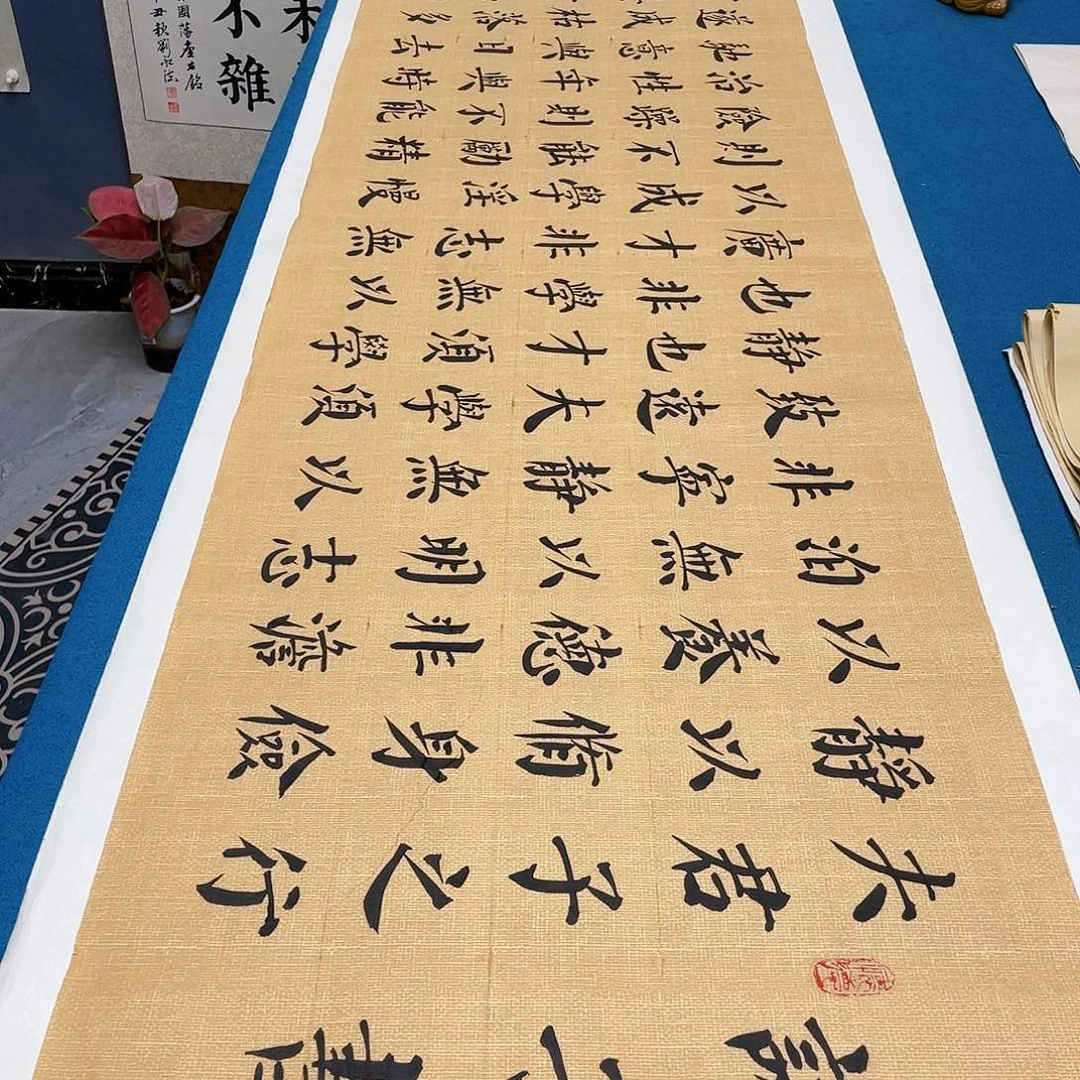 誡子書
夫君子之行
静以脩身儉
以養德非澹
泊無以明志
非寧静無以
致遠夫學須
静也才須學
也非學無以
廣才非志無
以成學淫慢
則不能勵精
險躁則不能
治性年與時
馳意與日去
遂成枯落多
不雜